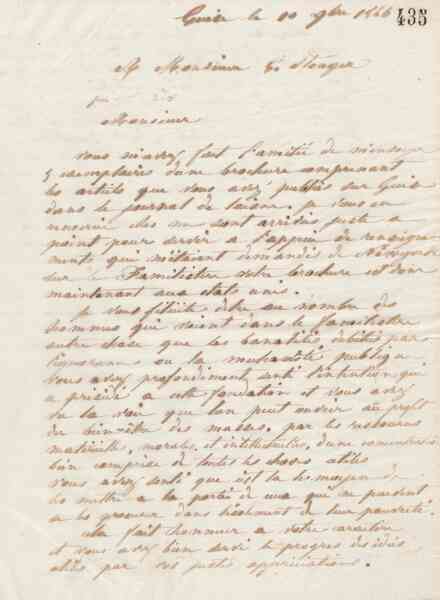 Guise le 10 9bre 1866 435
A Monsieur
Monsieur
vous m'avez fait l'amitié de m'envoyer
5 exemplaires d'une brochure comprenant
les articles que vous avez publiés sur Guise
dans le journal de l'aisne. je vous en
remercie elles me sont arrivées juste a
point pour servir a l'appui de renseigne
ments qui m'étaient demandés de Newyork
sur le Familistère votre brochure est donc
maintenant aux états unis.
je vous félicite d'être au nombre des
hommes qui voient dans le familistère
autre chose que les banalités débitées par
l'ignorance ou la méchanceté publique
vous avez profondément senti l'intention qui
a présidé a cette fondation et vous avez
vu la voie que l'on peut ouvrir au profit
du bien-être des masses. par les ressources
matérielles, morales, et intellectuelles, d'une
bien comprise de toutes les choses utiles
vous avez senti que c'est la le moyen de
les mettre a la portée de ceux qui ne peuvent
se les procurer dans l'isolement de leur pauvreté.
cela fait honneur a votre caractère
et vous avez bien servi le progrès des idées
utiles par vos justes appréciations.